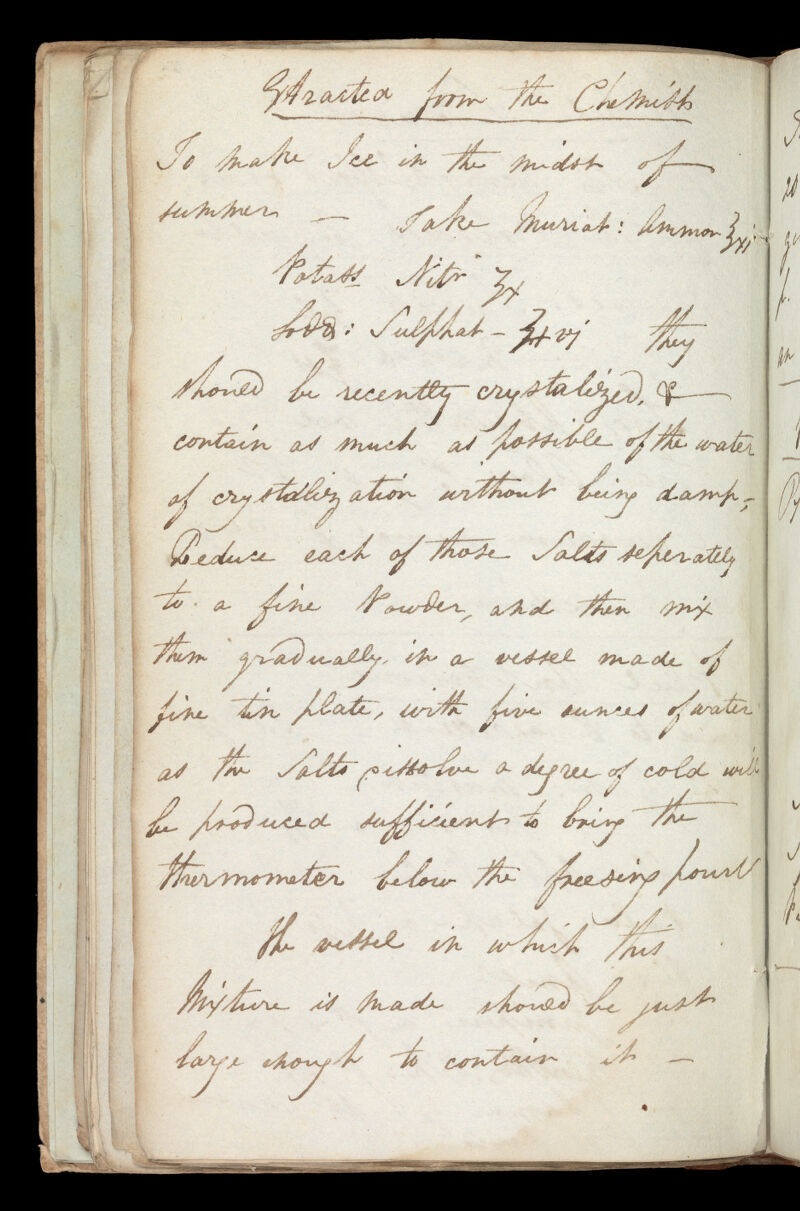 Extracted from the Chemists
To make Ice in the midst of
summer — Take Muriat: Ammon ʒxj
Potass Nitr ʒx
Sodæ: Sulphat – ʒxvj they
should be recently crystalized, &
contain as much as possible of the water
of crystalization without being damp,
Reduce each of those Salts seperately
to a fine Powder, and then mix
them gradually in a vessel made of
fine tin plate, with five ounces of water
as the Salts dissolve a degree of cold will
be produced sufficient to bring the
thermometer below the freesing point
The vessel in which this
Mixture is made should be just
large enough to contain it —